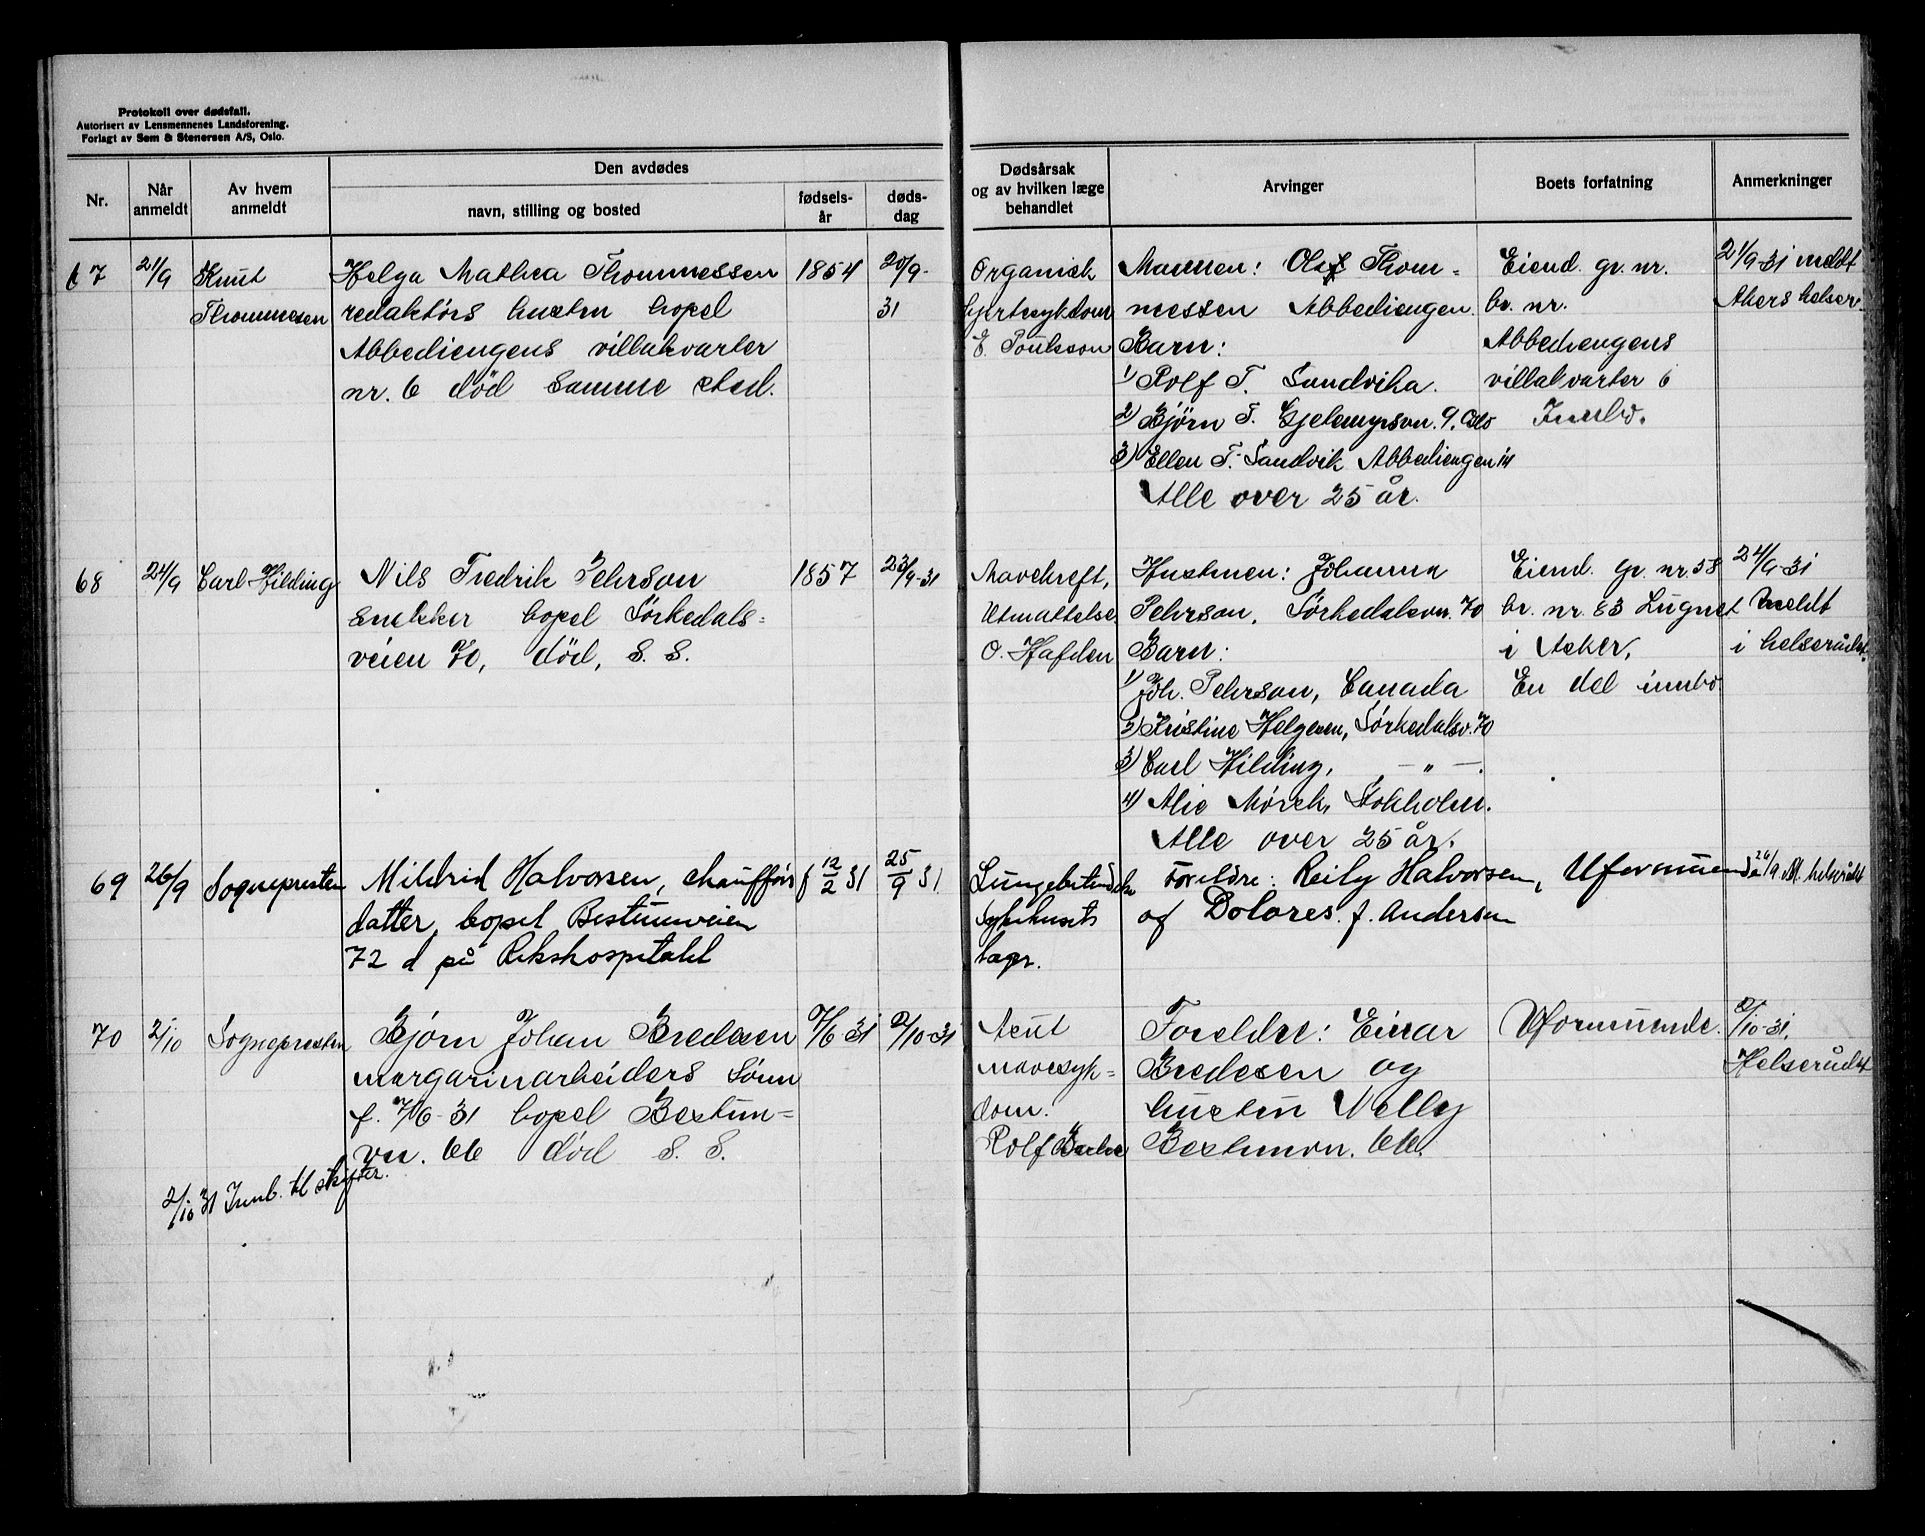 Protokoll over dødsfall.
Autorisert av Lensmennenes Landsforening.
Forlagt av Sem & Stenersen A/S, Oslo.
Nr.
Når anmeldt
Av hvem anmeldt
Den avdødes
navn, stilling og bosted
fødsels-år
døds-dag
Dødsårsak og av hvilken læge behandlet
Arvinger
Boets forfatning
Anmerkninger
67
21/9
Knut
Thommesen
Helga Mathea Thommessen
redaktørs hustru bopel
Abbediengens villakvarter
nr. 6 død samme sted.
1854
20/9-
31
Organisk
hjertesykdom
E. Poulsson
Mannen: Olaf Thom-
messen Abbediengen.
Barn:
1) Rolf T. Sandvika.
2) Bjørn T. Gjelemyrsvn. 9. Oslo
3) Ellen T. Sandvik Abbediengen 14
Alle over 25 år.
Eiend. gr. nr.
br. nr.
Abbediengens
villakvarter 6
Innbo.
21/9-31 meldt
Akers helser.
68
24/9
Carl Hilding
Nils Fredrik Pehrson
snekker bopel Sørkedals-
veien 70, død, S. S.
1857
23/9-31
Mavekreft,
Utmattelse
O. Hafden
Hustruen: Johanna
Pehrson, Sørkedalsvn. 70
Barn:
1) Joh. Pehrson, Canada
2) Kristine Helgesen, Sørkedalsv. 70
3) Carl Hilding, — " —.
4) Alie Mørck, Stokholm.
Alle over 25 år.
Eiend. gr. nr. 58
br. nr. 83 Lugnet
i Aker,
En del innbo.
24/9-31
meldt
i helserådet.
69
26/9
Sognepresten
Mildrid Halvorsen, chaufførs
datter, bopel Bestumveien
72 d på Rikshospitalet
f 12/2 31
25/9 31
Lungebetendelse
Sykehusets
læger.
Foreldre: Reily Halvorsen,
og Dolores f. Andersen
Uformuende
26/9 M. helserådet
70
2/10
Sognepresten
Bjørn Johan Bredesen
margarinarbeiders sønn
f. 7/6-31 bopel Bestum-
vn. 66 død S. S.
7/6-31
2/10-31
Acut
mavesyk-
dom.
Rolf
Foreldre: Einar
Bredesen og
hustru Nelly
Bestumvn. 66.
Uformuende.
2/10-31.
Helserådet
2/10 31 Innb. til skifter.